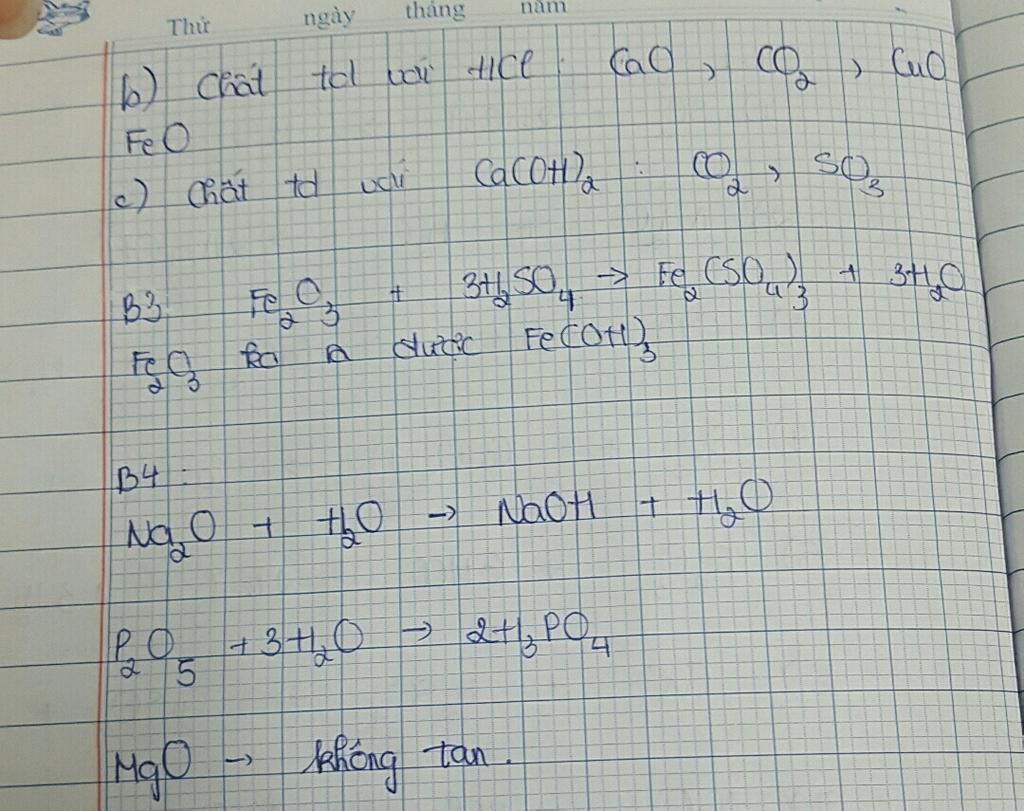 Thứ ngày tháng năm
b) Chất td với HCl : CaO, CO₂, CuO
FeO
c) Chất td với Ca(OH)₂ : CO₂, SO₃
B3: Fe₂O₃ + 3H₂SO₄ → Fe₂(SO₄)₃ + 3H₂O
Fe₂O₃ được Fe(OH)₃
B4 :
Na₂O + H₂O → NaOH + H₂O
P₂O₅ + 3H₂O → 2H₃PO₄
MgO → không tan.